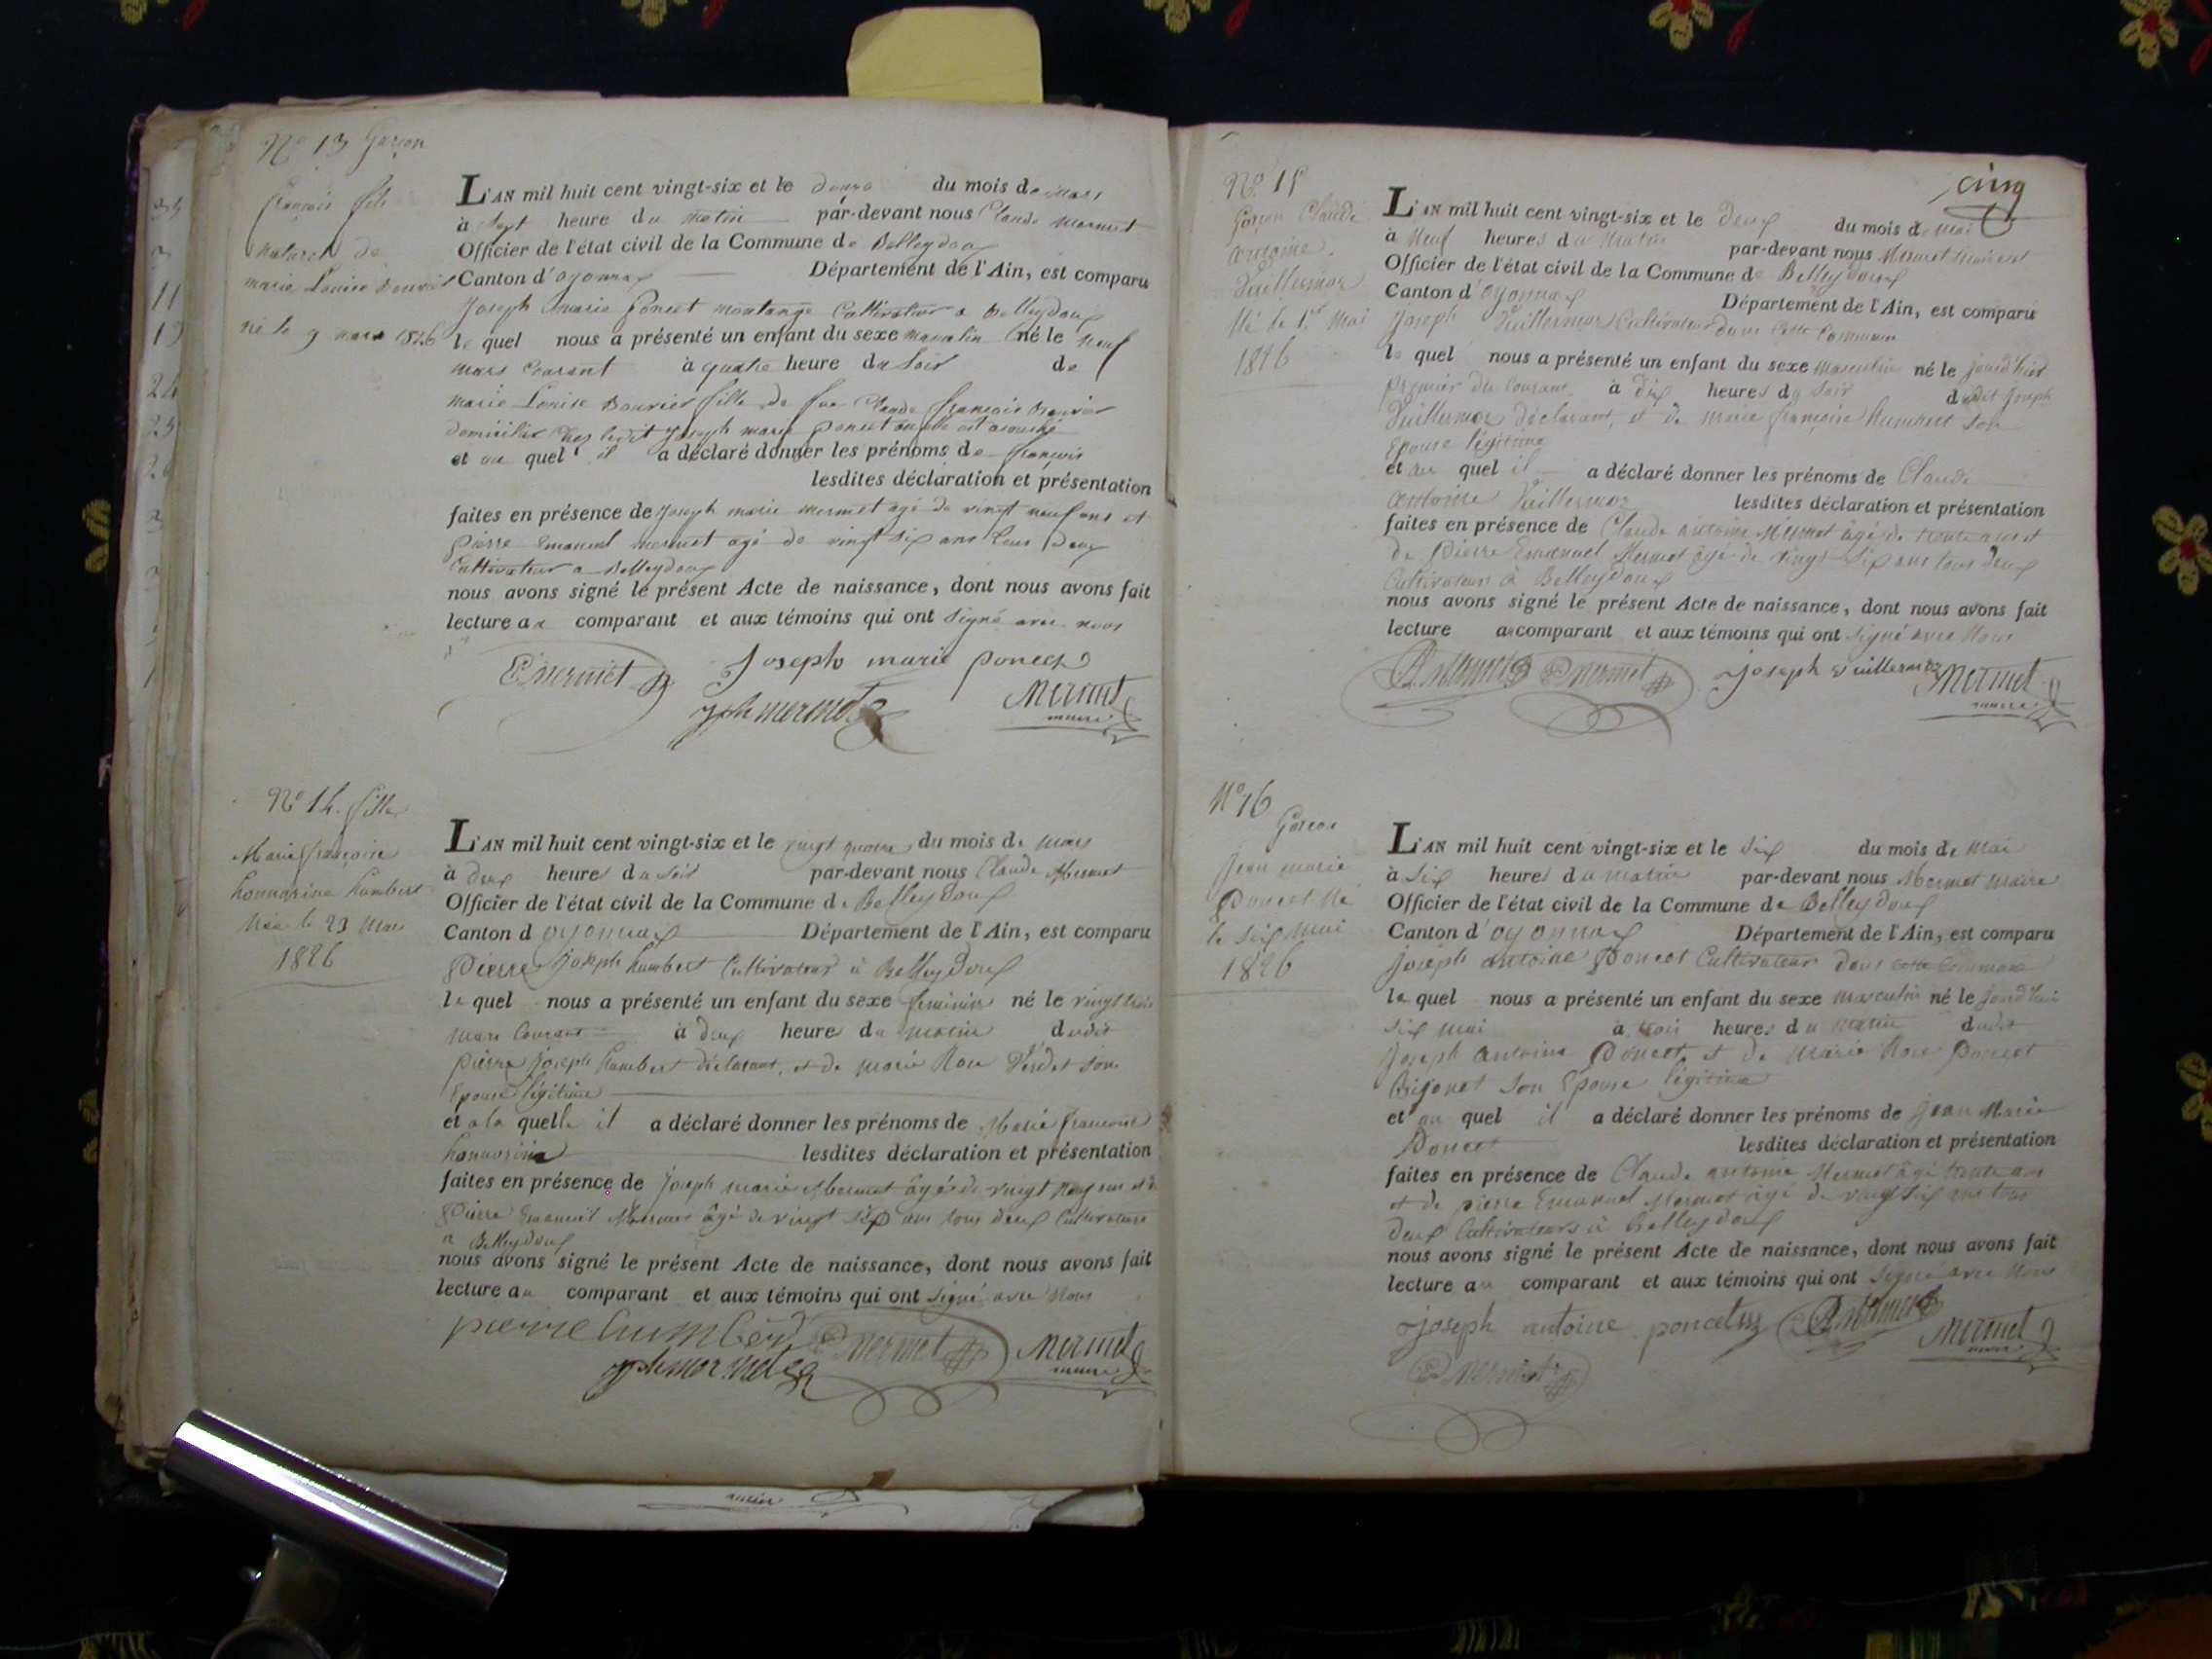 N° 13 Garçon
françois fils
naturel de
marie Louise Bouvier
né le 9 mars 1826
L'AN mil huit cent vingt-six et le douze du mois de mars
à sept heure du matin par-devant nous Claude mermet
Officier de l'état civil de la Commune de Belleydoux
Canton d'oyonnax Département de l'Ain, est comparu
Joseph marie Poncet montange Cultivateur a Belleydoux
le quel nous a présenté un enfant du sexe masculin né le neuf
mars Courant à quatre heure du soir de
marie Louise Bouvier fille de feu Claude françois Bouvier
domiciliée chez ledit Joseph marie poncet ou elle est acouchée
et au quel il a déclaré donner les prénoms de françois
lesdites déclaration et présentation
faites en présence de Joseph marie mermet agé de vingt neuf ans et
pierre Emanuel mermet agé de vingt six ans tous deux
Cultivateur a Belleydoux
nous avons signé le présent Acte de naissance, dont nous avons fait
lecture au comparant et aux témoins qui ont signé avec nous
E mermet Joseph marie poncet
jph mermet Mermet
maire
N° 14. fille
Marie françoise
honnorine humbert
Née le 23 Mars
1826
L'AN mil huit cent vingt-six et le vingt quatre du mois de mars
à deux heures du soir par-devant nous Claude Mermet
Officier de l'état civil de la Commune de Belleydoux
Canton d oyonnax Département de l'Ain, est comparu
Pierre Joseph humbert Cultivateur à Belleydoux
le quel nous a présenté un enfant du sexe feminin né le vingt trois
mars Courant à deux heures du matin dudit
pierre joseph humbert déclarant, et de marie Rose Verdet son
Epouse légitime
et a la quelle il a déclaré donner les prénoms de Marie françoise
honnorine lesdites déclaration et présentation
faites en présence de Joseph marie Mermet âgé de vingt neuf ans et de
Pierre Emanuel Mermet âgé de vingt six ans tous deux Cultivateurs
a Belleydoux
nous avons signé le présent Acte de naissance, dont nous avons fait
lecture au comparant et aux témoins qui ont signé avec Nous
pierre humberd E mermet Mermet
jph mermet maire
cinq
N° 15
Garçon Claude
antoine
Vuillermoz
Né le 1er Mai
1826
L'AN mil huit cent vingt-six et le deux du mois de mai
à Neuf heures du Matin par-devant nous Mermet
Officier de l'état civil de la Commune de Belleydoux
Canton d'oyonnax Département de l'Ain, est comparu
Joseph Vuillermoz Cultivateur dans Cette Commune
le quel nous a présenté un enfant du sexe masculin né le jourd'hier
premier du Courant à dix heures du soir dudit Joseph
Vuillermoz déclarant, et de marie françoise humbert son
Epouse légitime
et au quel il a déclaré donner les prénoms de Claude
antoine Vuillermoz lesdites déclaration et présentation
faites en présence de Claude antoine Mermet âgé de trente ans et
de Pierre Emanuel Mermet âgé de vingt six ans tous deux
Cultivateurs à Belleydoux
nous avons signé le présent Acte de naissance, dont nous avons fait
lecture au comparant et aux témoins qui ont signé avec Nous
E mermet joseph vuillermoz Mermet
maire
N° 16
Garçon
Jean marie
Poncet Né
le six Mai
1826
L'AN mil huit cent vingt-six et le six du mois de mai
à six heures du matin par-devant nous Mermet maire
Officier de l'état civil de la Commune de Belleydoux
Canton d'oyonnax Département de l'Ain, est comparu
Joseph antoine Poncet Cultivateur dans cette Commune
le quel nous a présenté un enfant du sexe masculin né le jourd'hui
six mai à trois heures du matin dudit
Joseph antoine Poncet, et de marie Rose Poncet
Bigonet son Epouse légitime
et au quel il a déclaré donner les prénoms de jean Marie
Poncet lesdites déclaration et présentation
faites en présence de Claude antoine Mermet âgé trente ans
et de pierre Emanuel Mermet âgé de vingt six ans tous
deux Cultivateurs à Belleydoux
nous avons signé le présent Acte de naissance, dont nous avons fait
lecture au comparant et aux témoins qui ont signé avec Nous
joseph antoine poncet Mermet
maire
E mermet